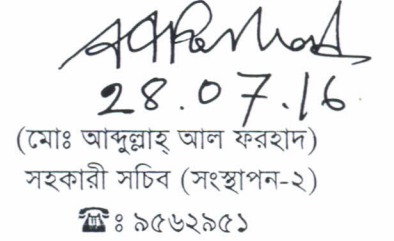 28.07.16
(মোঃ আব্দুল্লাহ্ আল ফরহাদ)
সহকারী সচিব (সংস্থাপন-২)
☎ঃ ৯৫৬২৯৫১